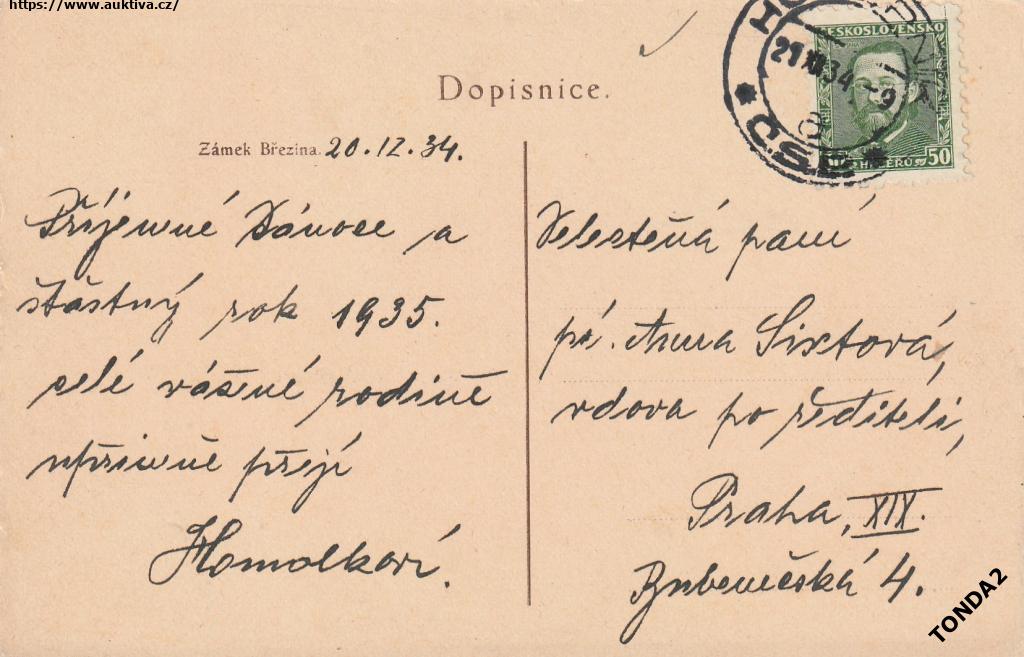 https://www.auktiva.cz/
Dopisnice.
Zámek Březina. 20.12.34.
Příjemné Vánoce a
šťastný rok 1935.
celé vážené rodině
upřímně přejí
Homolkovi.
ČESKOSLOVENSKO
50 HALÉŘŮ 50
21 XII 34 -9
8
Č.S.R.
Velectěná paní
pí. Anna Sixtová,
vdova po řediteli,
Praha, XIX.
Bubenečská 4.
TONDA2